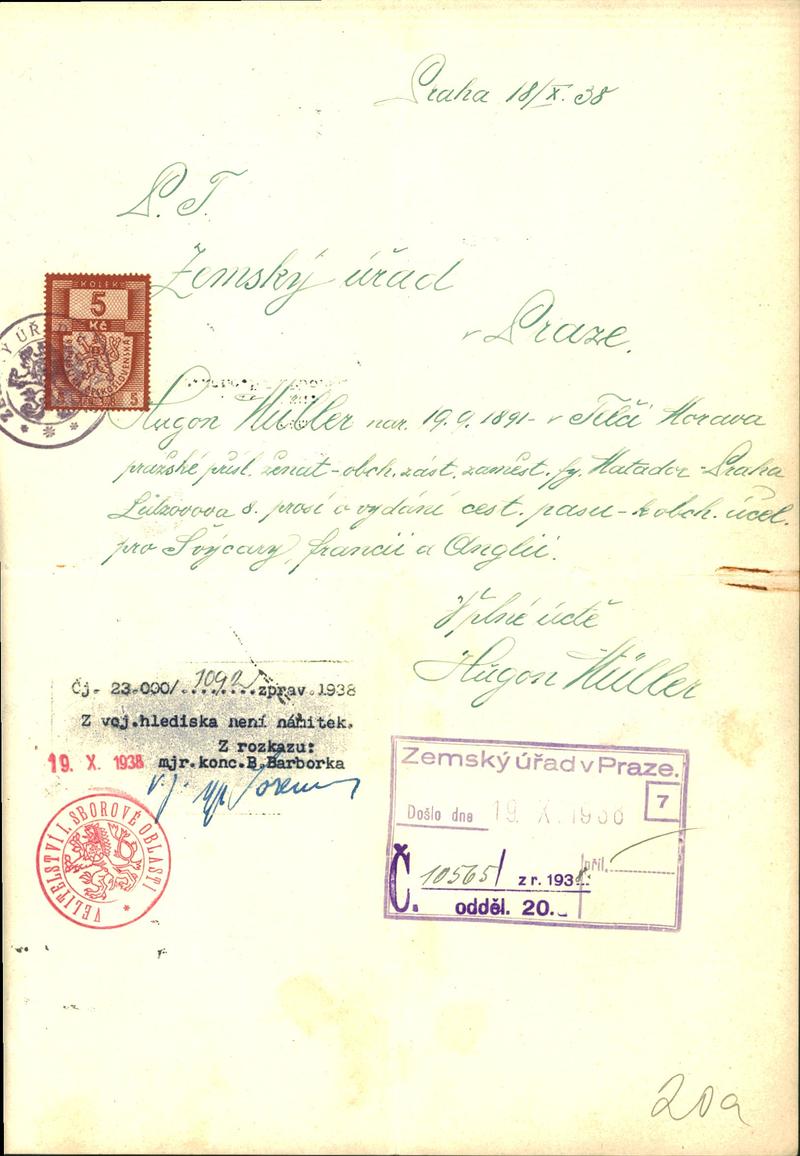 Praha 18/X. 38
P. T.
Zemský úřad
v Praze.
KOLEK
5
Kč
Hugon Müller nar. 19.9.1891 - v Telči Morava
pražské přísl. ženat - obch. zást. zaměst. fy. Matador - Praha
Lützovova 8. prosí o vydání cest. pasu - k obch. účel.
pro Švýcary, Francii a Anglii.
V plné úctě
Hugon Müller
Čj. 23.000/1092 zprav. 1938
Z voj. hlediska není námitek.
Z rozkazu:
19. X. 1938 mjr. konc. B. Barborka
VELITELSTVÍ I. SBOROVÉ OBLASTI
Zemský úřad v Praze.
7
Došlo dne 19. X. 1938
Č. 10565/ z r. 1938. příl.
odděl. 20.
20a